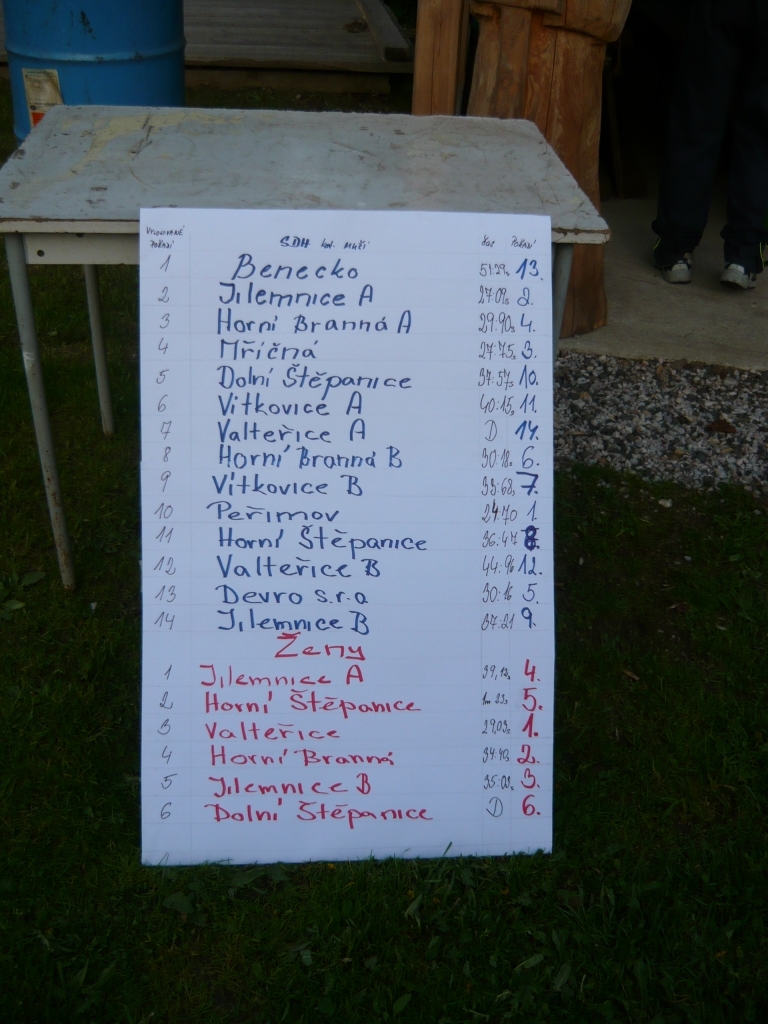 SDH kat. muži čas pořadí
pořadí
1 Benecko 51:29s 13.
2 Jilemnice A 27:09s 2.
3 Horní Branná A 29:90s 4.
4 Mříčná 27:75s 3.
5 Dolní Štěpanice 37:57s 10.
6 Vítkovice A 40:15s 11.
7 Valteřice A D 14.
8 Horní Branná B 30:18s 6.
9 Vítkovice B 33:68s 7.
10 Peřimov 24:70 1.
11 Horní Štěpanice 36:47 8.
12 Valteřice B 44:96 12.
13 Devro s.r.o 30:16 5.
14 Jilemnice B 37:21 9.
Ženy
1 Jilemnice A 39,12s 4.
2 Horní Štěpanice 5.
3 Valteřice 29,03s 1.
4 Horní Branná 34:40s 2.
5 Jilemnice B 35:02s 3.
6 Dolní Štěpanice D 6.